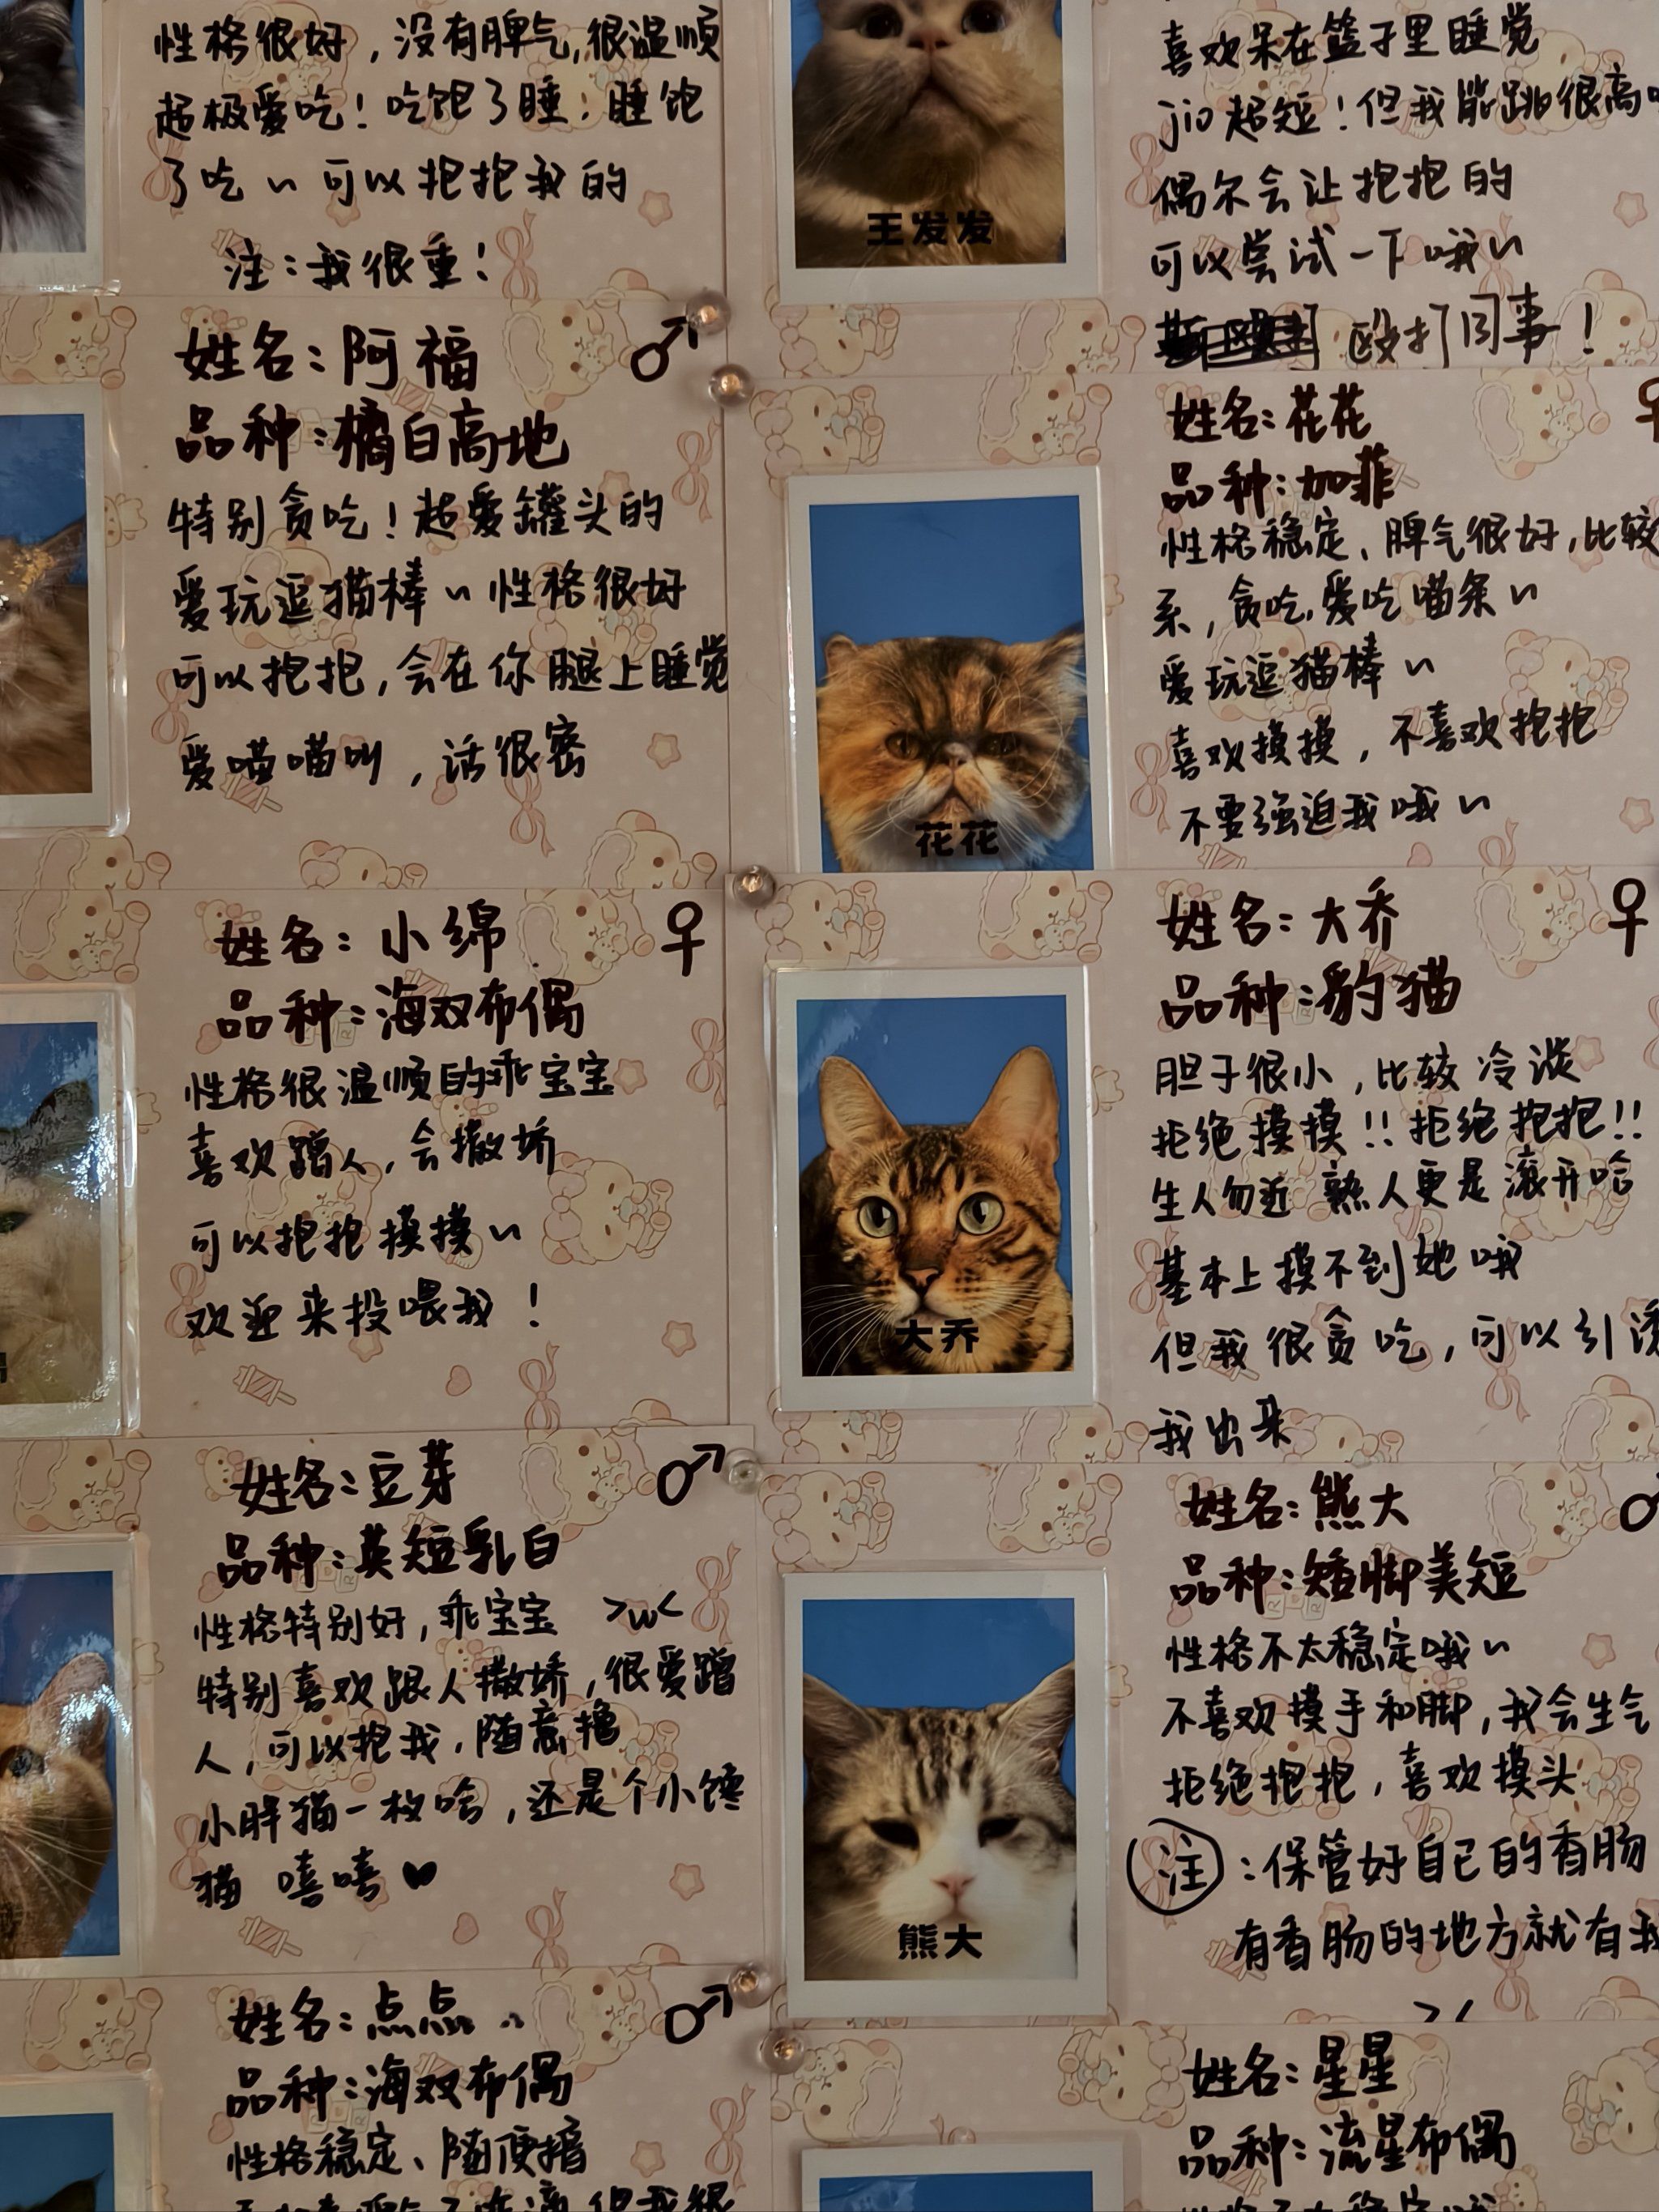 性格很好，没有脾气，很温顺
超极爱吃！吃饱了睡；睡饱
了吃～可以抱抱我的
注：我很重！
姓名：阿福 ♂
品种：橘白高地
特别贪吃！超爱罐头的
爱玩逗猫棒～性格很好
可以抱抱，会在你腿上睡觉
爱喵喵叫，话很密
姓名：小绵 ♀
品种：海双布偶
性格很温顺的乖宝宝
喜欢蹭人，会撒娇
可以抱抱摸摸～
欢迎来投喂我！
姓名：豆芽 ♂
品种：英短乳白
性格特别好，乖宝宝 >w<
特别喜欢跟人撒娇，很爱蹭
人，可以抱我，随意撸
小胖猫一枚哈，还是个小馋
猫 嘻嘻♥
姓名：点点 ♂
品种：海双布偶
性格稳定、随便撸
王发发
喜欢呆在篮子里睡觉
jio超短！但我能跳很高
偶尔会让抱抱的
可以尝试一下哦～
殴打同事！
姓名：花花 ♀
品种：加菲
性格稳定、脾气很好，比较
系，贪吃，爱吃喵条～
爱玩逗猫棒～
喜欢摸摸，不喜欢抱抱
不要强迫我哦～
花花
姓名：大乔 ♀
品种：豹猫
胆子很小，比较冷淡
拒绝摸摸!!拒绝抱抱!!
生人勿近 熟人更是滚开哈
基本上摸不到她哦
但我很贪吃，可以引诱
我出来
大乔
姓名：熊大 ♂
品种：矮脚美短
性格不太稳定哦～
不喜欢摸手和脚，我会生气
拒绝抱抱，喜欢摸头
注：保管好自己的香肠
有香肠的地方就有我
熊大
姓名：星星
品种：流星布偶